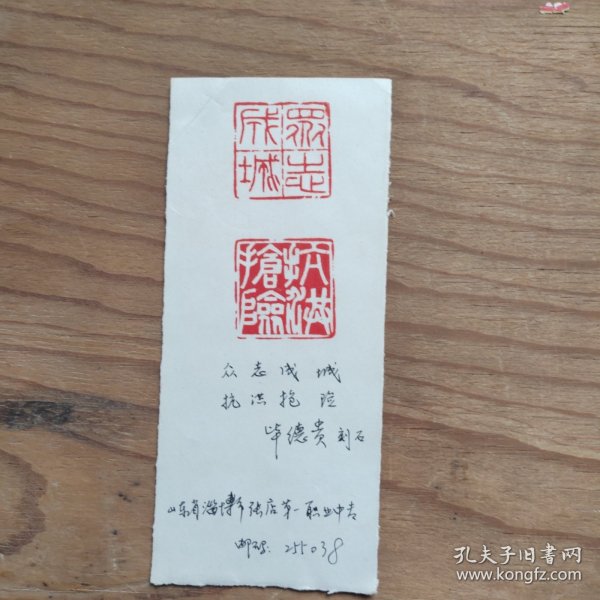 眾志成城
抗洪搶險
众志成城
抗洪抢险
毕德贵 刻石
山东省淄博市张店第一职业中专
邮码: 255038
孔夫子旧书网
www.kongfz.com